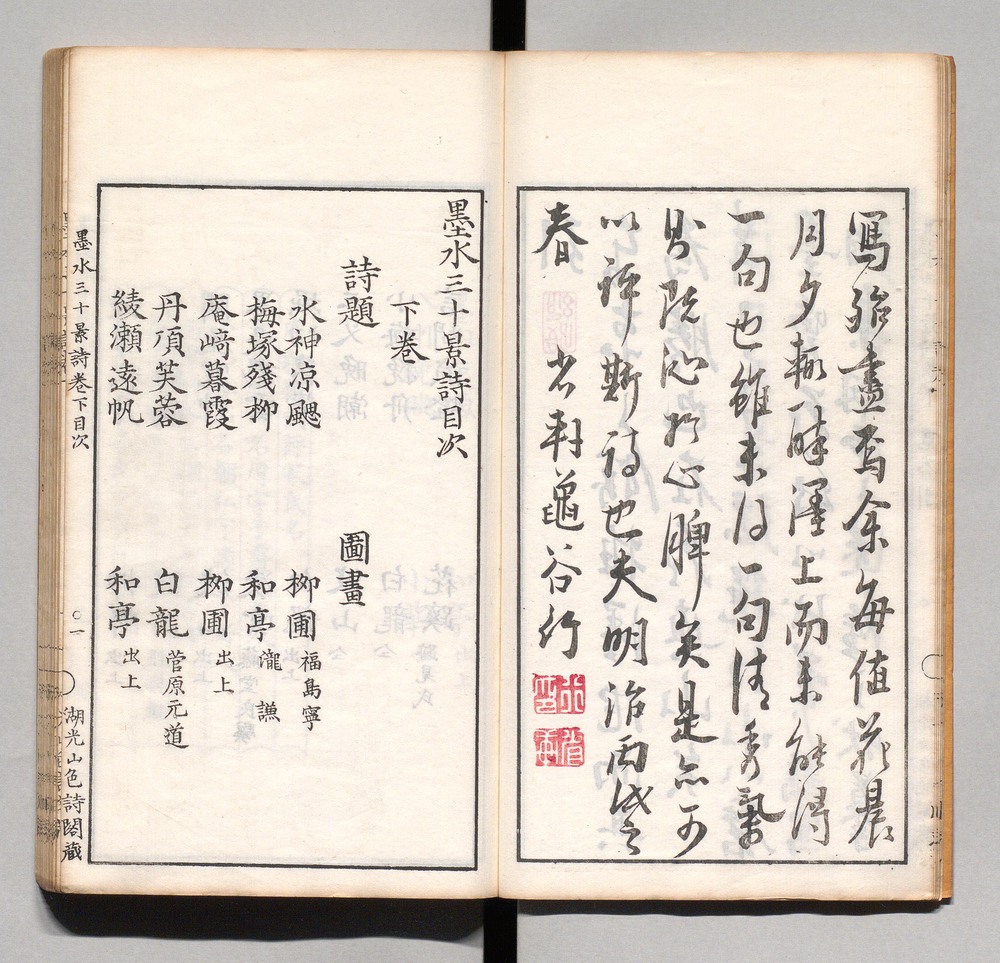 寫殆盡焉余每值花晨
月夕輒醉濹上而未能得
一句也雖未得一句清秀氣
則既沁於心脾矣是亦可
以評斯詩也夫明治丙戌之
春 省軒龜谷行
墨水三十景詩目次
下卷
詩題 圖畫
水神凉颸 柳圃 福島寧
梅塚殘柳 和亭 瀧 謙
庵﨑暮霞 柳圃 出上
丹項芙蓉 白龍 菅原元道
綾瀨遠帆 和亭 出上
墨水三十景詩卷下目次 ○一 湖光山色詩閣藏